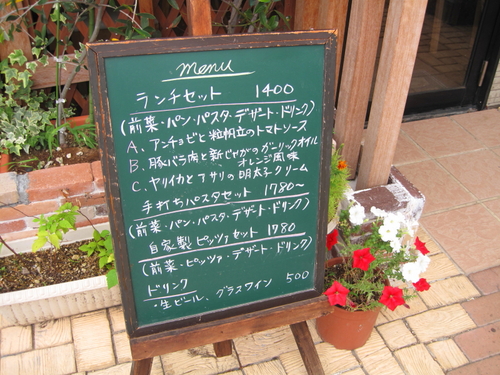 menu
ランチセット 1400
(前菜・パン・パスタ・デザート・ドリンク)
A. アンチョビと粒帆立のトマトソース
B. 豚バラ肉と新じゃがのガーリックオイル
オレンジ風味
C. ヤリイカとアサリの明太子クリーム
手打ちパスタセット 1780〜
(前菜・パン・パスタ・デザート・ドリンク)
自家製ピッツァセット 1780
(前菜・ピッツァ・デザート・ドリンク)
ドリンク
・生ビール、グラスワイン 500